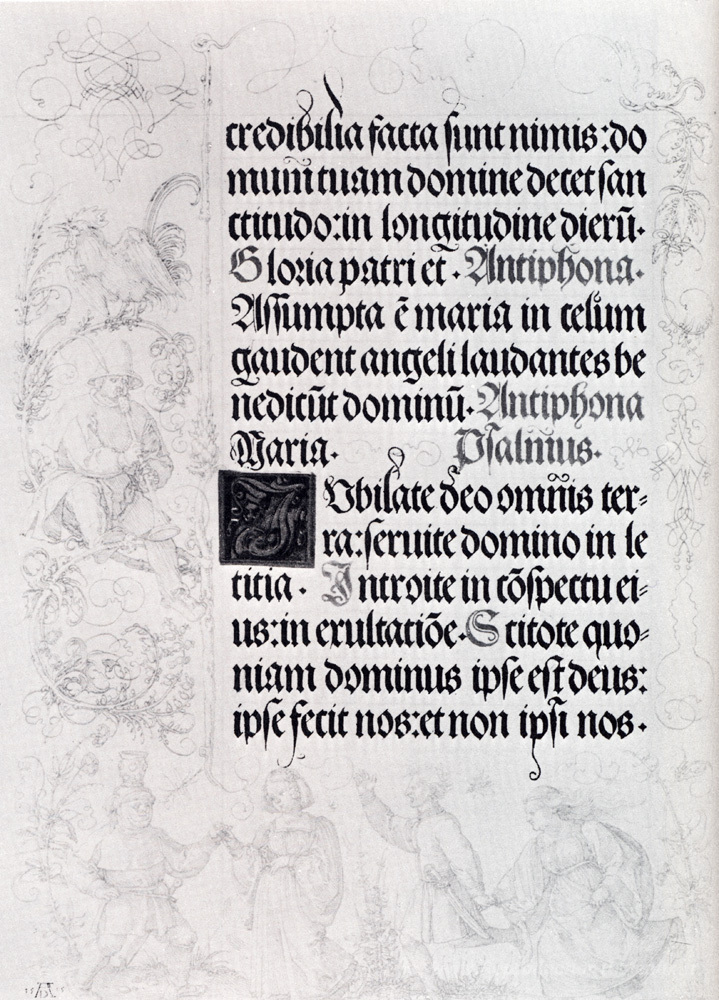 credibilia facta sunt nimis: do
mum̄ tuam domine decet san
ctitudo: in longitudine dierū.
Gloria patri et. Antiphona.
Assumpta ē maria in celum
gaudent angeli laudantes be
nedicūt dominū. Antiphona
Maria. Psalmus.
IVbilate deo omnis ter⸗
ra: seruite domino in le
titia. Introite in cōspectu ei⸗
us: in exultatiōe. Scitote quo⸗
niam dominus ipse est deus:
ipse fecit nos: et non ipsi nos.
AD